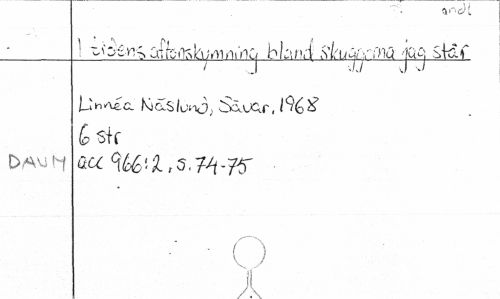 andl
I tidens aftonskymning bland skuggorna jag står
Linnéa Näslund, Sävar, 1968
6 str
DAUM acc 966:2, s. 74-75